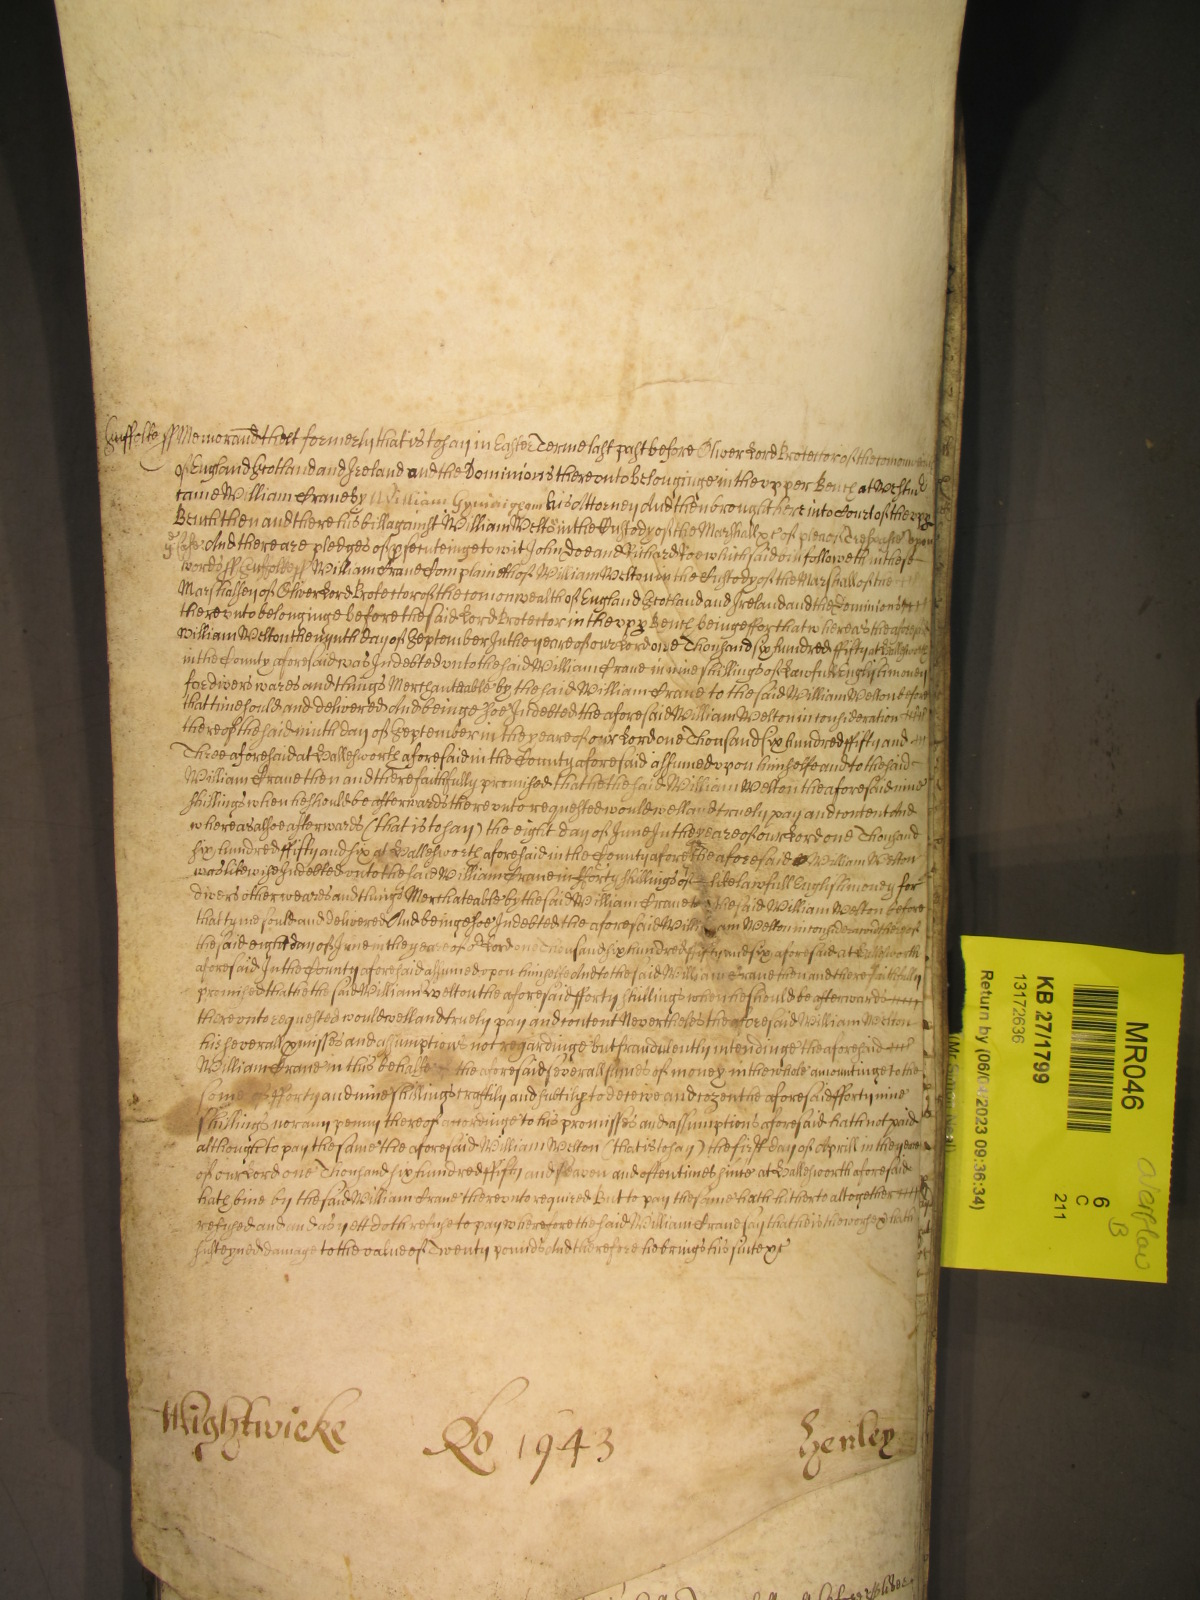 Suffolke ss Memorand thatt formerly that is to say in Easter Terme last past before Oliver Lord Protector of the comonwealth
of England Scotland and Ireland and the Dominions thereunto belonginge in the upper Bench at Westmr
came William Crane by William his Attorney And then brought here into Court of the upp
Bench then and there his bill against William Welton in the Custody of the Marshall &c of plea of Trespasse upon
ye Case And there are pledges of psecuteinge to wit John Doe and Richard Roe which said followeth in these
words ss Suffolke ss William Crane Complaineth of William Welton in the Custody of the Marshall of the
Marshalsey of Oliver Lord Protector of the comonwealth of England Scotland and Ireland and the Dominions
thereunto belonginge before the said Lord Protector in the upp Bench beinge ffor that whereas the aforesaid
William Welton the nynth day of September In the yeare of our Lord one Thousand six hundred ffifty at
in the County aforesaid was Indebted unto the said William Crane in nine shillings of Lawfull English money
for divers wares and things Merchanteable by the said William Crane to the said William Welton before
that time sould and delivered And beinge soe Indebted the aforesaid William Welton in consideration
thereof the said ninth day of September in the yeare of our Lord one Thousand six hundred ffifty and
Three aforesaid at Wallesworth aforesaid in the County aforesaid assumed upon himselfe and to the said
William Crane then and there faithfully promised that he the said William Welton the aforesaid nine
shillings when he should be afterwards thereunto requested would well and truely pay and content And
whereas alsoe afterwards (that is to say) the eight day of June In the yeare of our Lord one Thousand
six hundred ffifty and six at Wallesworth aforesaid in the County afore the aforesaid William Welton
was likewise Indebted unto the said William Crane in fforty shillings of like lawfull English money for
divers other weares and things Merchateable by the said William Crane to the said William Welton before
that tyme sould and delivered And beinge soe Indebted the aforesaid William Welton in consideracon thereof
the said eight day of June in the yeare of or Lord one Thousand six hundred ffifty and six aforesaid at Wallesworth
aforesaid In the County aforesaid assumed upon himselfe And to the said William Crane then and there faithfully
promised that he the said William Welton the aforesaid fforty shillings when he should be afterwards
thereunto requested would well and truely pay and content Nevertheles the aforesaid William Welton
his severall pmisses and assumptions not regardinge but fraudulently intendinge the aforesaid
William Crane in this behalfe the aforesaid severall sumes of money in the whole amountinge to the
some of fforty and nine shillings craftily and subtily to deceive and cozen the aforesaid fforty nine
shillings nor any penny thereof accordinge to his promisses and assumptions aforesaid hath not paid
although to pay the same the aforesaid William Welton (that is to say) the first day of Aprill in the yeare
of our Lord one Thousand six hundred ffifty and seaven and oftentimes since at Wallesworth aforesaid
hath bine by the said William Crane thereunto required But to pay the same hath hitherto altogether
refused and and as yett doth refuse to pay wherefore the said William Crane say that he is the worse & hath
susteyned damage to the value of Twenty pounds And therefore he brings his suite &c
Wightwicke Ro 1943 Henley
MR046
6
C
211
KB 27/1799
13172636
Return by (06/04/2023 09:36:34)
overflow
B